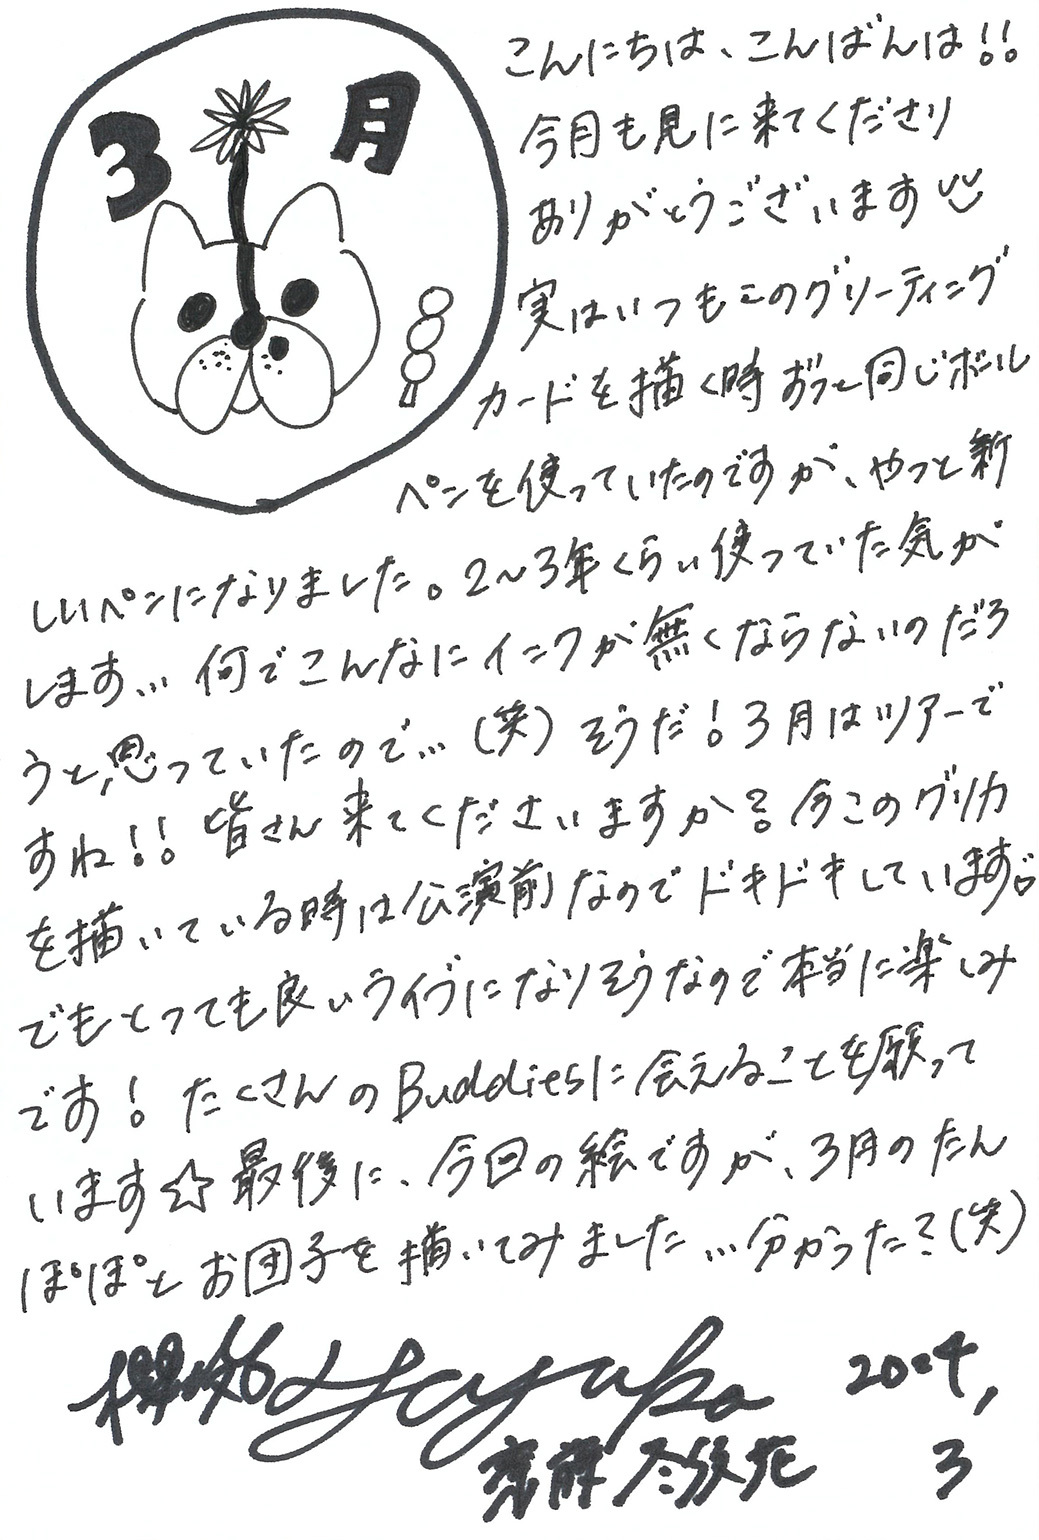 3月
こんにちは、こんばんは!!
今月も見に来てくださり
ありがとうございます
実はいつもこのグリーティング
カードを描く時ずっと同じボール
ペンを使っていたのですが、やっと新
しいペンになりました。2〜3年くらい使っていた気が
します… 何でこんなにインクが無くならないのだろ
うと、思っていたので…(笑)そうだ!3月はツアーで
すね!!皆さん来てくださいますか?今このグリカ
を描いている時は公演前なのでドキドキしています♡
でもとっても良いライブになりそうなので本当に楽しみ
です!たくさんのBuddiesに会えることを願って
います☆最後に、今回の絵ですが、3月のたん
ぽぽとお団子を描いてみました…分かった?(笑)
櫻坂46 Fuyuka 2024,
齋藤冬優花 3